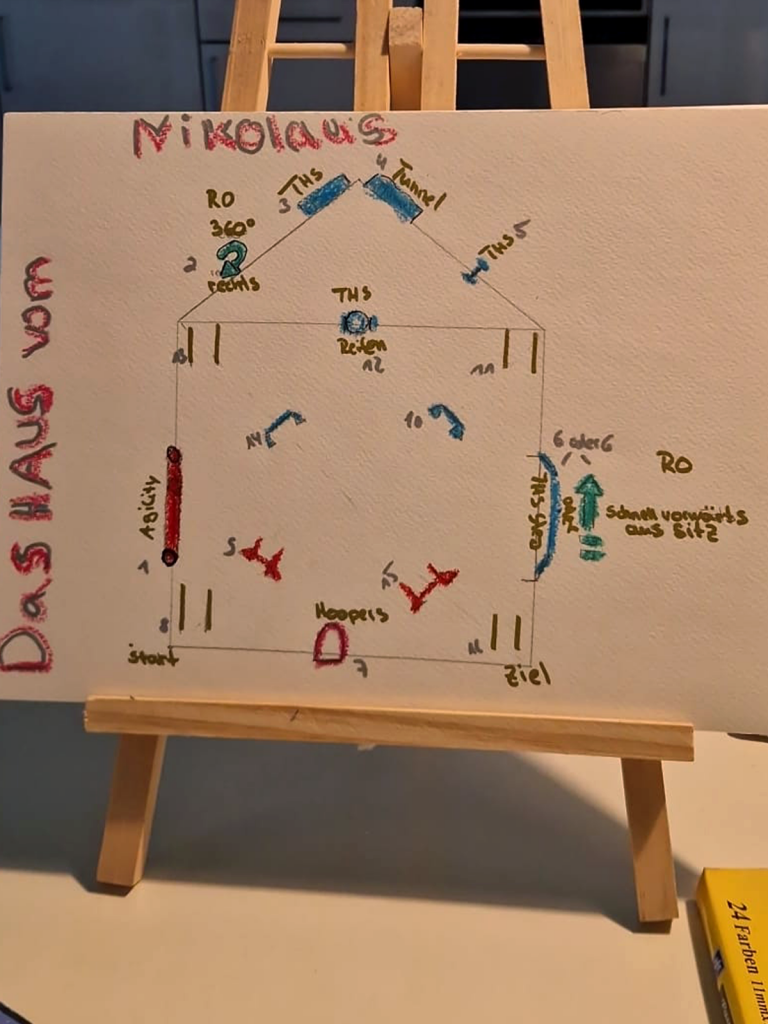 Nikolaus
Das HAUS vom
4
THS
Tunnel
3
RO
360°
2
rechts
THS 5
THS
Reifen
12
13
11
14
10
6 oder 6
RO
THS Steg
oder
Schnell vorwärts
aus Sitz
Agility
1
9
15
Hoopers
8
16
Start
7
Ziel
24 Farben 11mm